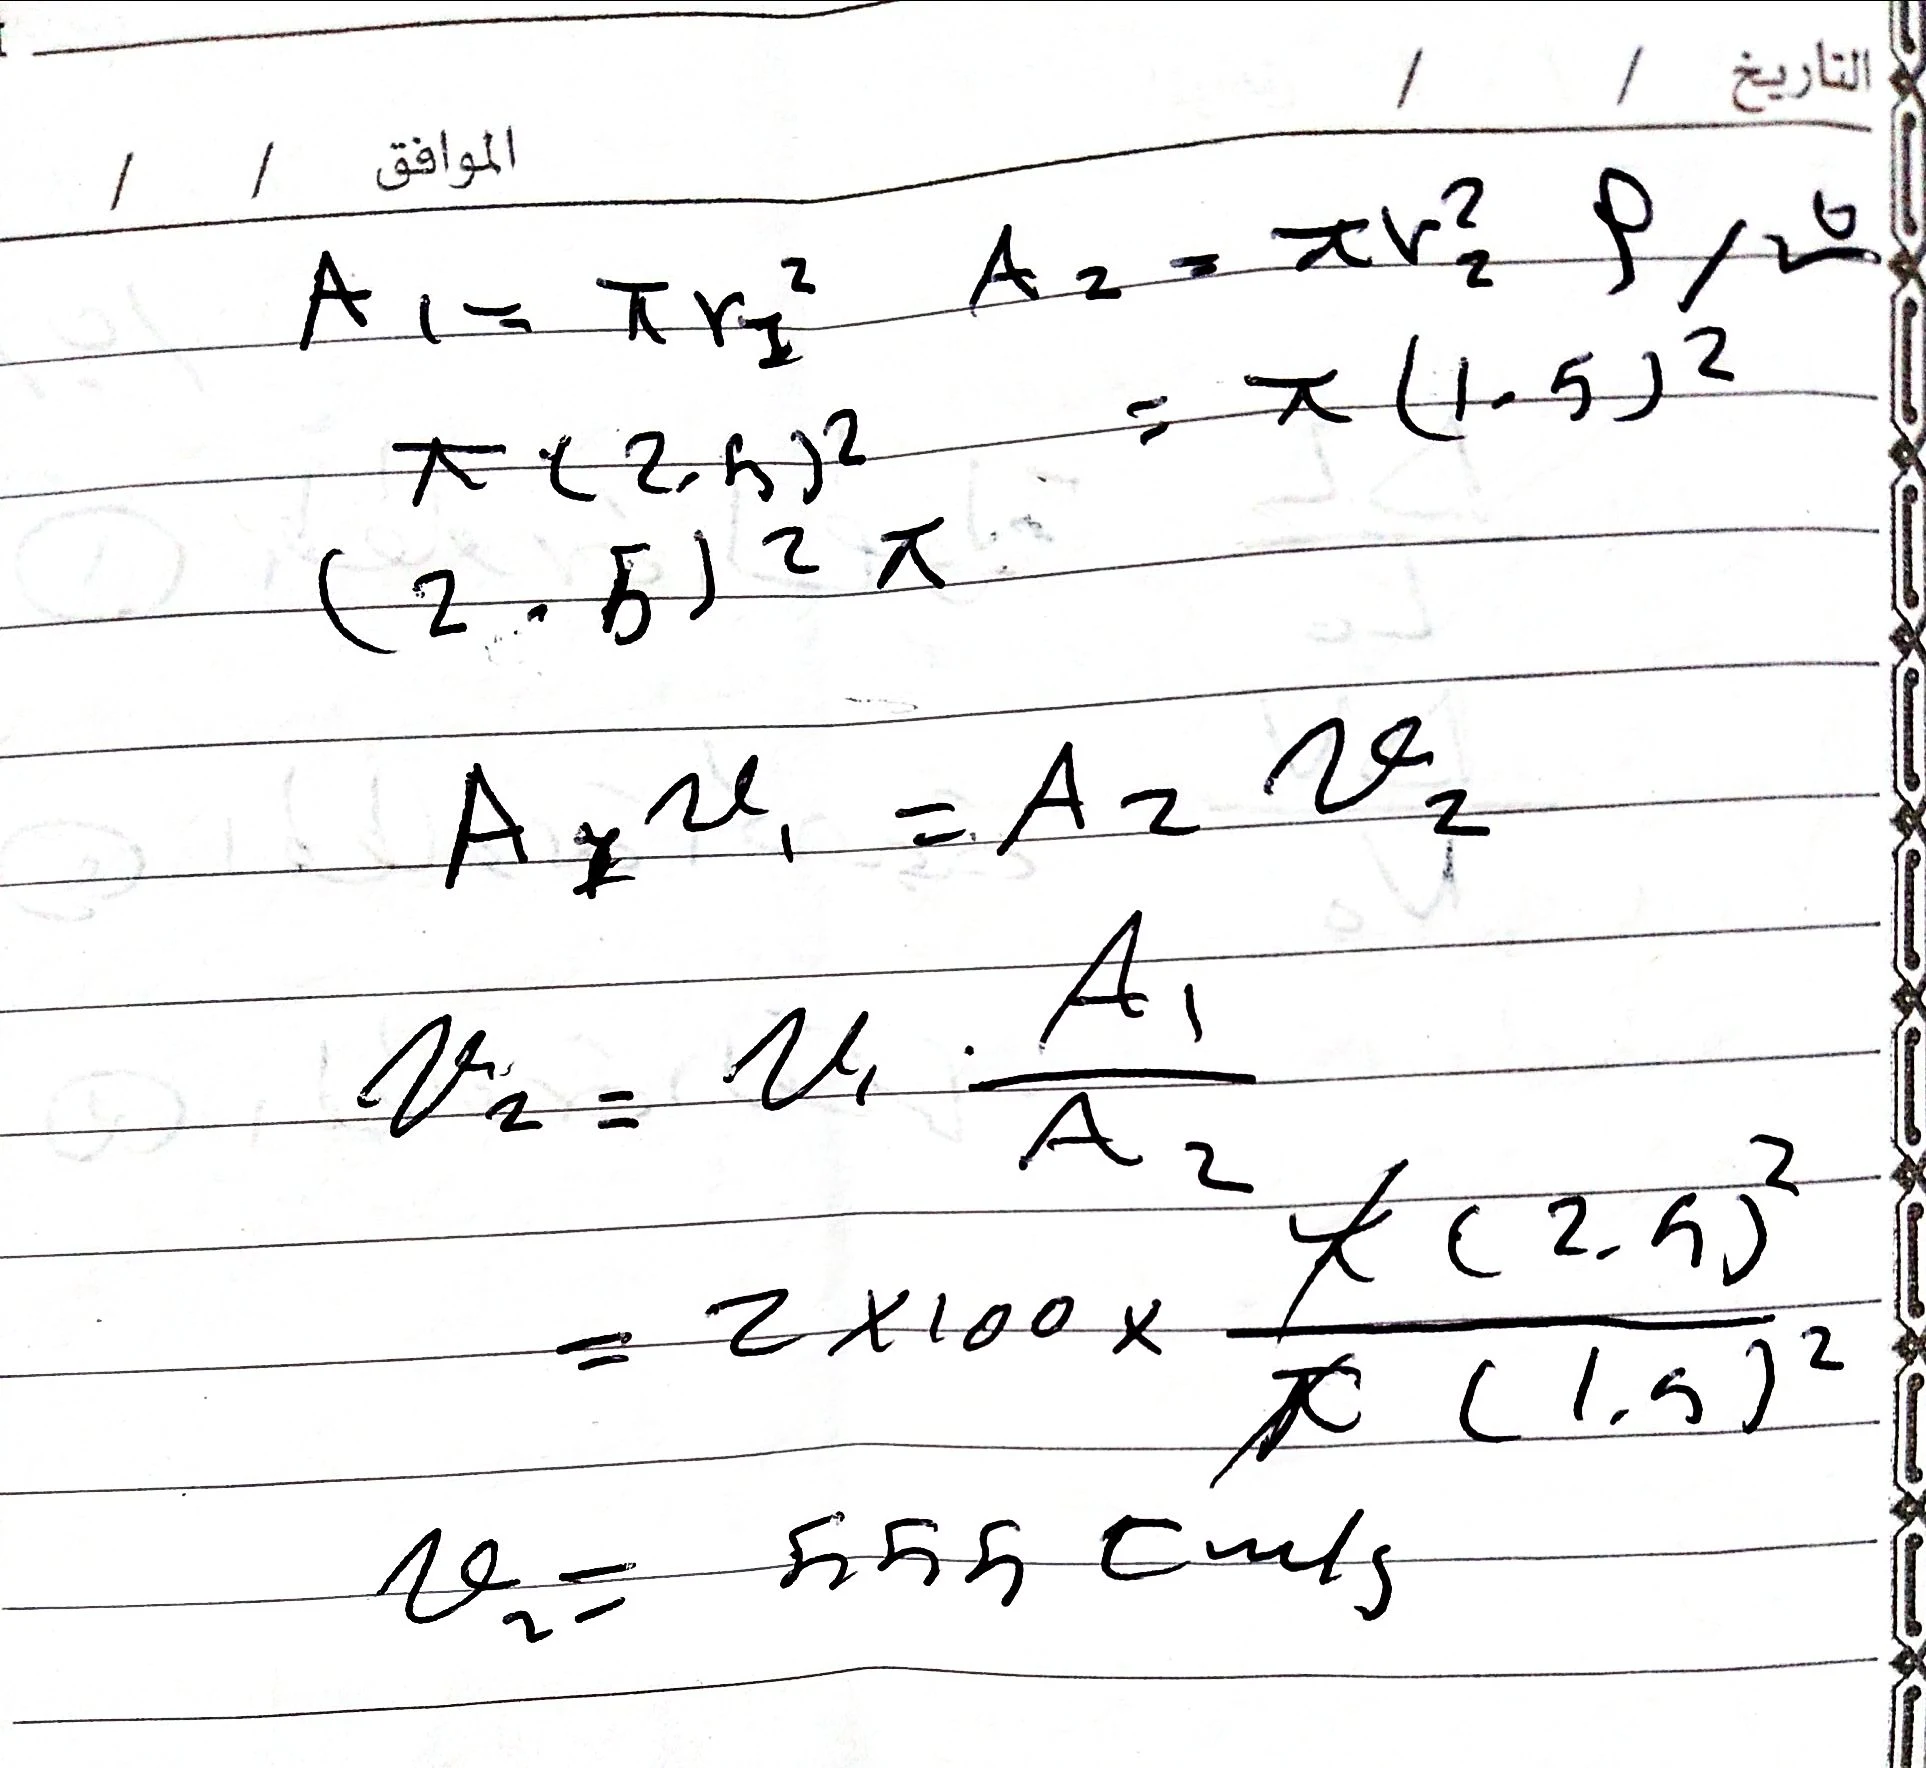 التاريخ / /
الموافق / /
A₁ = πr₁² A₂ = πr₂²
π(2.5)² = π(1.5)²
(2.5)²π
A₁v₁ = A₂v₂
v₂ = v₁ · A₁/A₂
= 2×100× π(2.5)²/π(1.5)²
v₂ = 555 cm/s